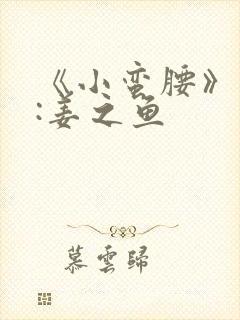 《小蛮腰》
:姜之鱼
慕雲歸